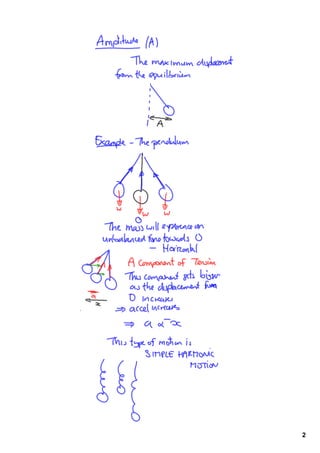 Amplitude (A)
The maximum displacement
from the equilibrium
A
Example - The pendulum
w
w
w
O
The mass will experience an
unbalanced force towards O
- Horizontal
A component of Tension
This component gets bigger
as the displacement from
O increases
a
x
⇒ accel increases
⇒ a α - x
This type of motion is
SIMPLE HARMONIC
MOTION
2